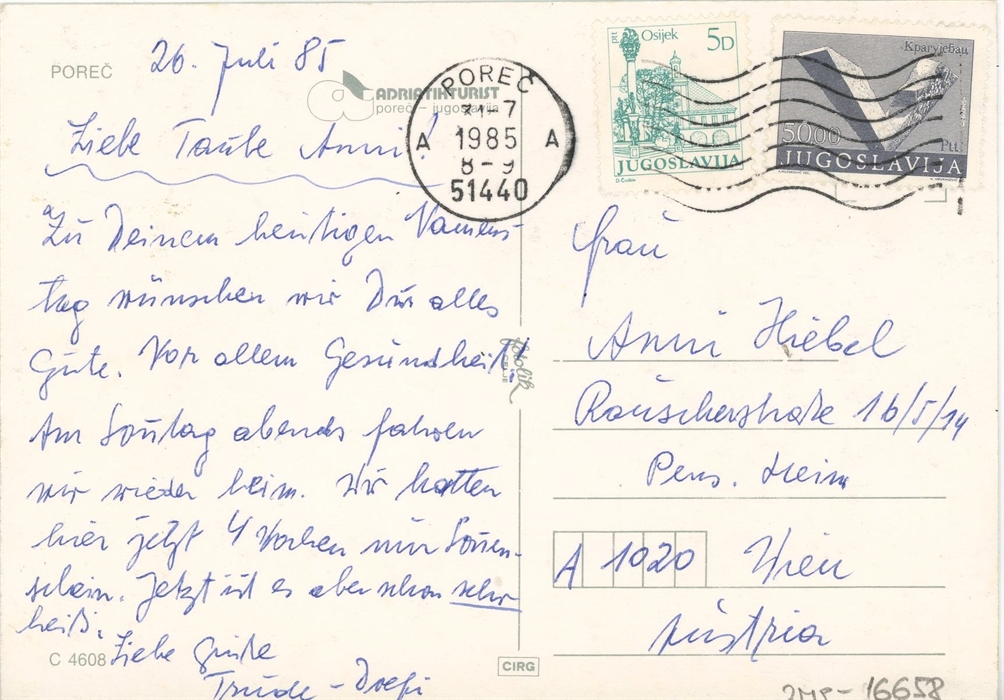 POREČ
26. Juli 85
ADRIATIKTURIST
poreč – jugoslavija
Liebe Taube Anni!
Zu Deinem heutigen Namens-
tag wünschen wir Dir alles
Gute. Vor allem Gesundheit!
Am Sonntag abends fahren
wir wieder heim. Wir hatten
hier jetzt 4 Wochen nur Sonnen-
schein. Jetzt ist es aber schon sehr
heiß.
Liebe Grüße
Trude -
C 4608
POREČ
31-7
1985
8-9
51440
A A
ptt Osijek 5D
JUGOSLAVIJA
Крагујевац
50.00 Ptt
JUGOSLAVIJA
Frau
Anni Hiebel
Rauscherstraße 16/5/14
Pens. Heim
A 1020 Wien
Austria
CIRG